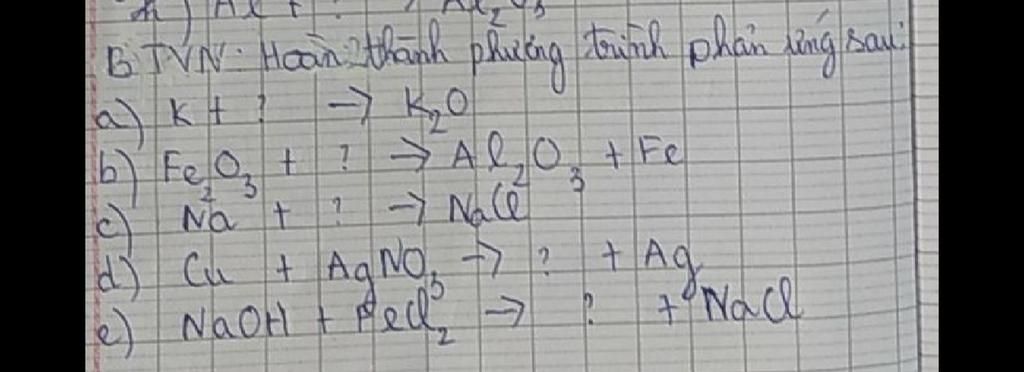 BTVN: Hoàn thành phương trình phản ứng sau:
a) K + ? → K₂O
b) Fe₂O₃ + ? → Al₂O₃ + Fe
c) Na + ? → NaCl
d) Cu + AgNO₃ → ? + Ag
e) NaOH + FeCl₂ → ? + NaCl